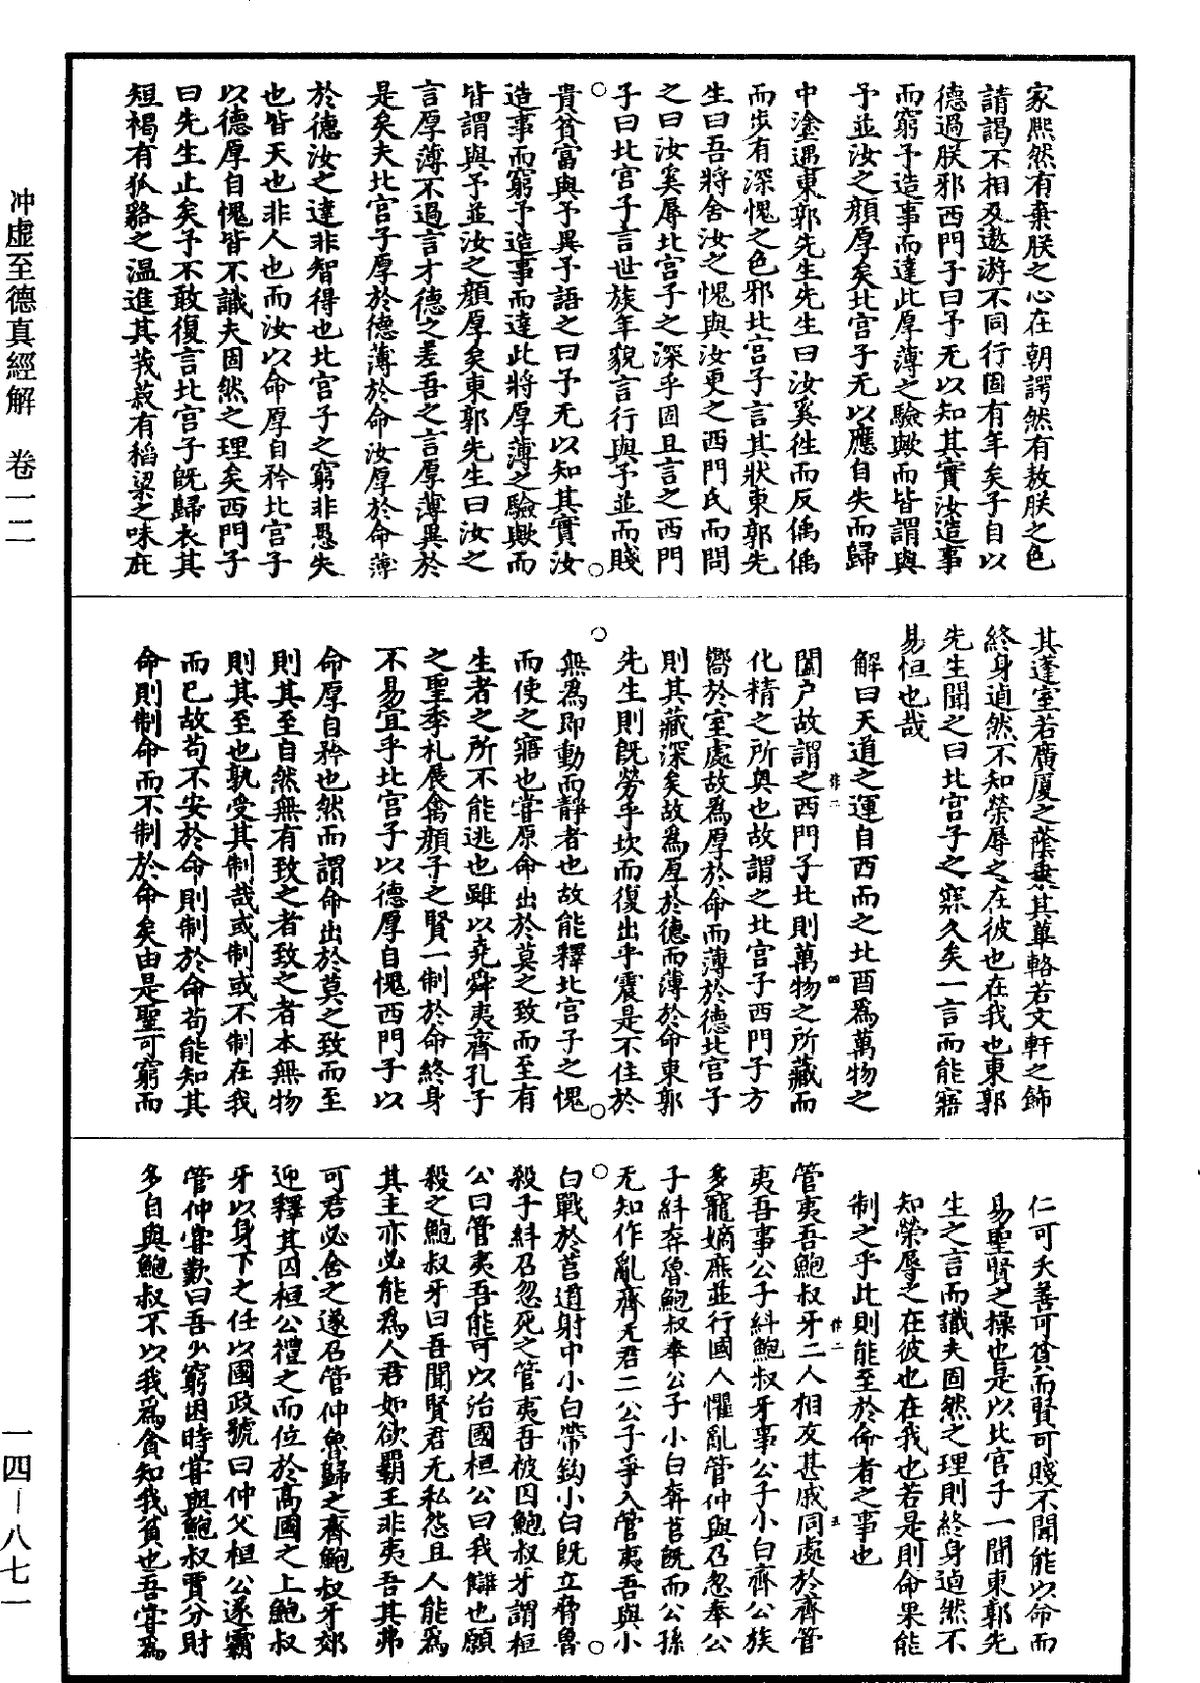 家熙然有棄朕之心在朝諤然有敖朕之色
請謁不相及遨游不同行固有年矣子自以
德過朕邪西門子曰予无以知其實汝造事
而窮予造事而達此厚薄之驗歟而皆謂與
予並汝之顏厚矣北宮子无以應自失而歸
中塗遇東郭先生先生曰汝奚徃而反偊偊
而步有深愧之色邪北宮子言其狀東郭先
生曰吾將舍汝之愧與汝更之西門氏而問
之曰汝奚辱北宮子之深乎固且言之西門
子曰北宮子言世族年貌言行與予並而賤
貴貧富與予異予語之曰予无以知其實汝
造事而窮予造事而達此將厚薄之驗歟而
皆謂與予並汝之顏厚矣東郭先生曰汝之
言厚薄不過言才德之差吾之言厚薄異於
是矣夫北宮子厚於德薄於命汝厚於命薄
於德汝之達非智得也北宮子之窮非愚失
也皆天也非人也而汝以命厚自矜北宮子
以德厚自愧皆不識夫固然之理矣西門子
曰先生止矣予不敢復言北宮子旣歸衣其
短褐有狐貉之温進其茙菽有稻粱之味庇
其蓬室若廣厦之蔭乗其蓽輅若文軒之飾
終身逌然不知榮辱之在彼也在我也東郭
先生聞之曰北宮子之寐久矣一言而能寤
易怛也哉
解曰天道之運自西而之北酉爲萬物之
闔户故謂之西門子北則萬物之所藏而
化精之所輿也故謂之北宮子西門子方
嚮於室處故爲厚於命而薄於德北宮子
則其藏深矣故爲厚於德而薄於命東郭
先生則旣勞乎坎而復出乎震是不住於
無爲即動而靜者也故能釋北宮子之愧
而使之寤也嘗原命出於莫之致而至有
生者之所不能逃也雖以堯舜夷齊孔子
之聖季札展禽顏子之賢一制於命終身
不易宜乎北宮子以德厚自愧西門子以
命厚自矜也然而謂命出於莫之致而至
則其至自然無有致之者致之者本無物
則其至也孰受其制哉或制或不制在我
而已故苟不安於命則制於命苟能知其
命則制命而不制於命矣由是聖可窮而
仁可夭善可咎而賢可賤不聞能以命而
易聖賢之操也是以北宮子一聞東郭先
生之言而識夫固然之理則終身逌然不
知榮辱之在彼也在我也若是則命果能
制之乎此則能至於命者之事也
管夷吾鮑叔牙二人相友甚戚同處於齊管
夷吾事公子糾鮑叔牙事公子小白齊公族
多寵嫡庶並行國人懼亂管仲與召忽奉公
子糾奔魯鮑叔奉公子小白奔莒旣而公孫
无知作亂齊无君二公子爭入管夷吾與小
白戰於莒道射中小白帶鈎小白旣立脅魯
殺子糾召忽死之管夷吾被囚鮑叔牙謂桓
公曰管夷吾能可以治國桓公曰我讎也願
殺之鮑叔牙曰吾聞賢君无私怨且人能爲
其主亦必能爲人君如欲霸王非夷吾其弗
可君必舍之遂召管仲魯歸之齊鮑叔牙郊
迎釋其囚桓公禮之而位於高國之上鮑叔
牙以身下之任以國政號曰仲父桓公遂霸
管仲嘗歎曰吾少窮困時嘗與鮑叔賈分財
多自與鮑叔不以我爲貪知我貧也吾嘗爲
冲虛至德真經解　卷一二
一四—八七一